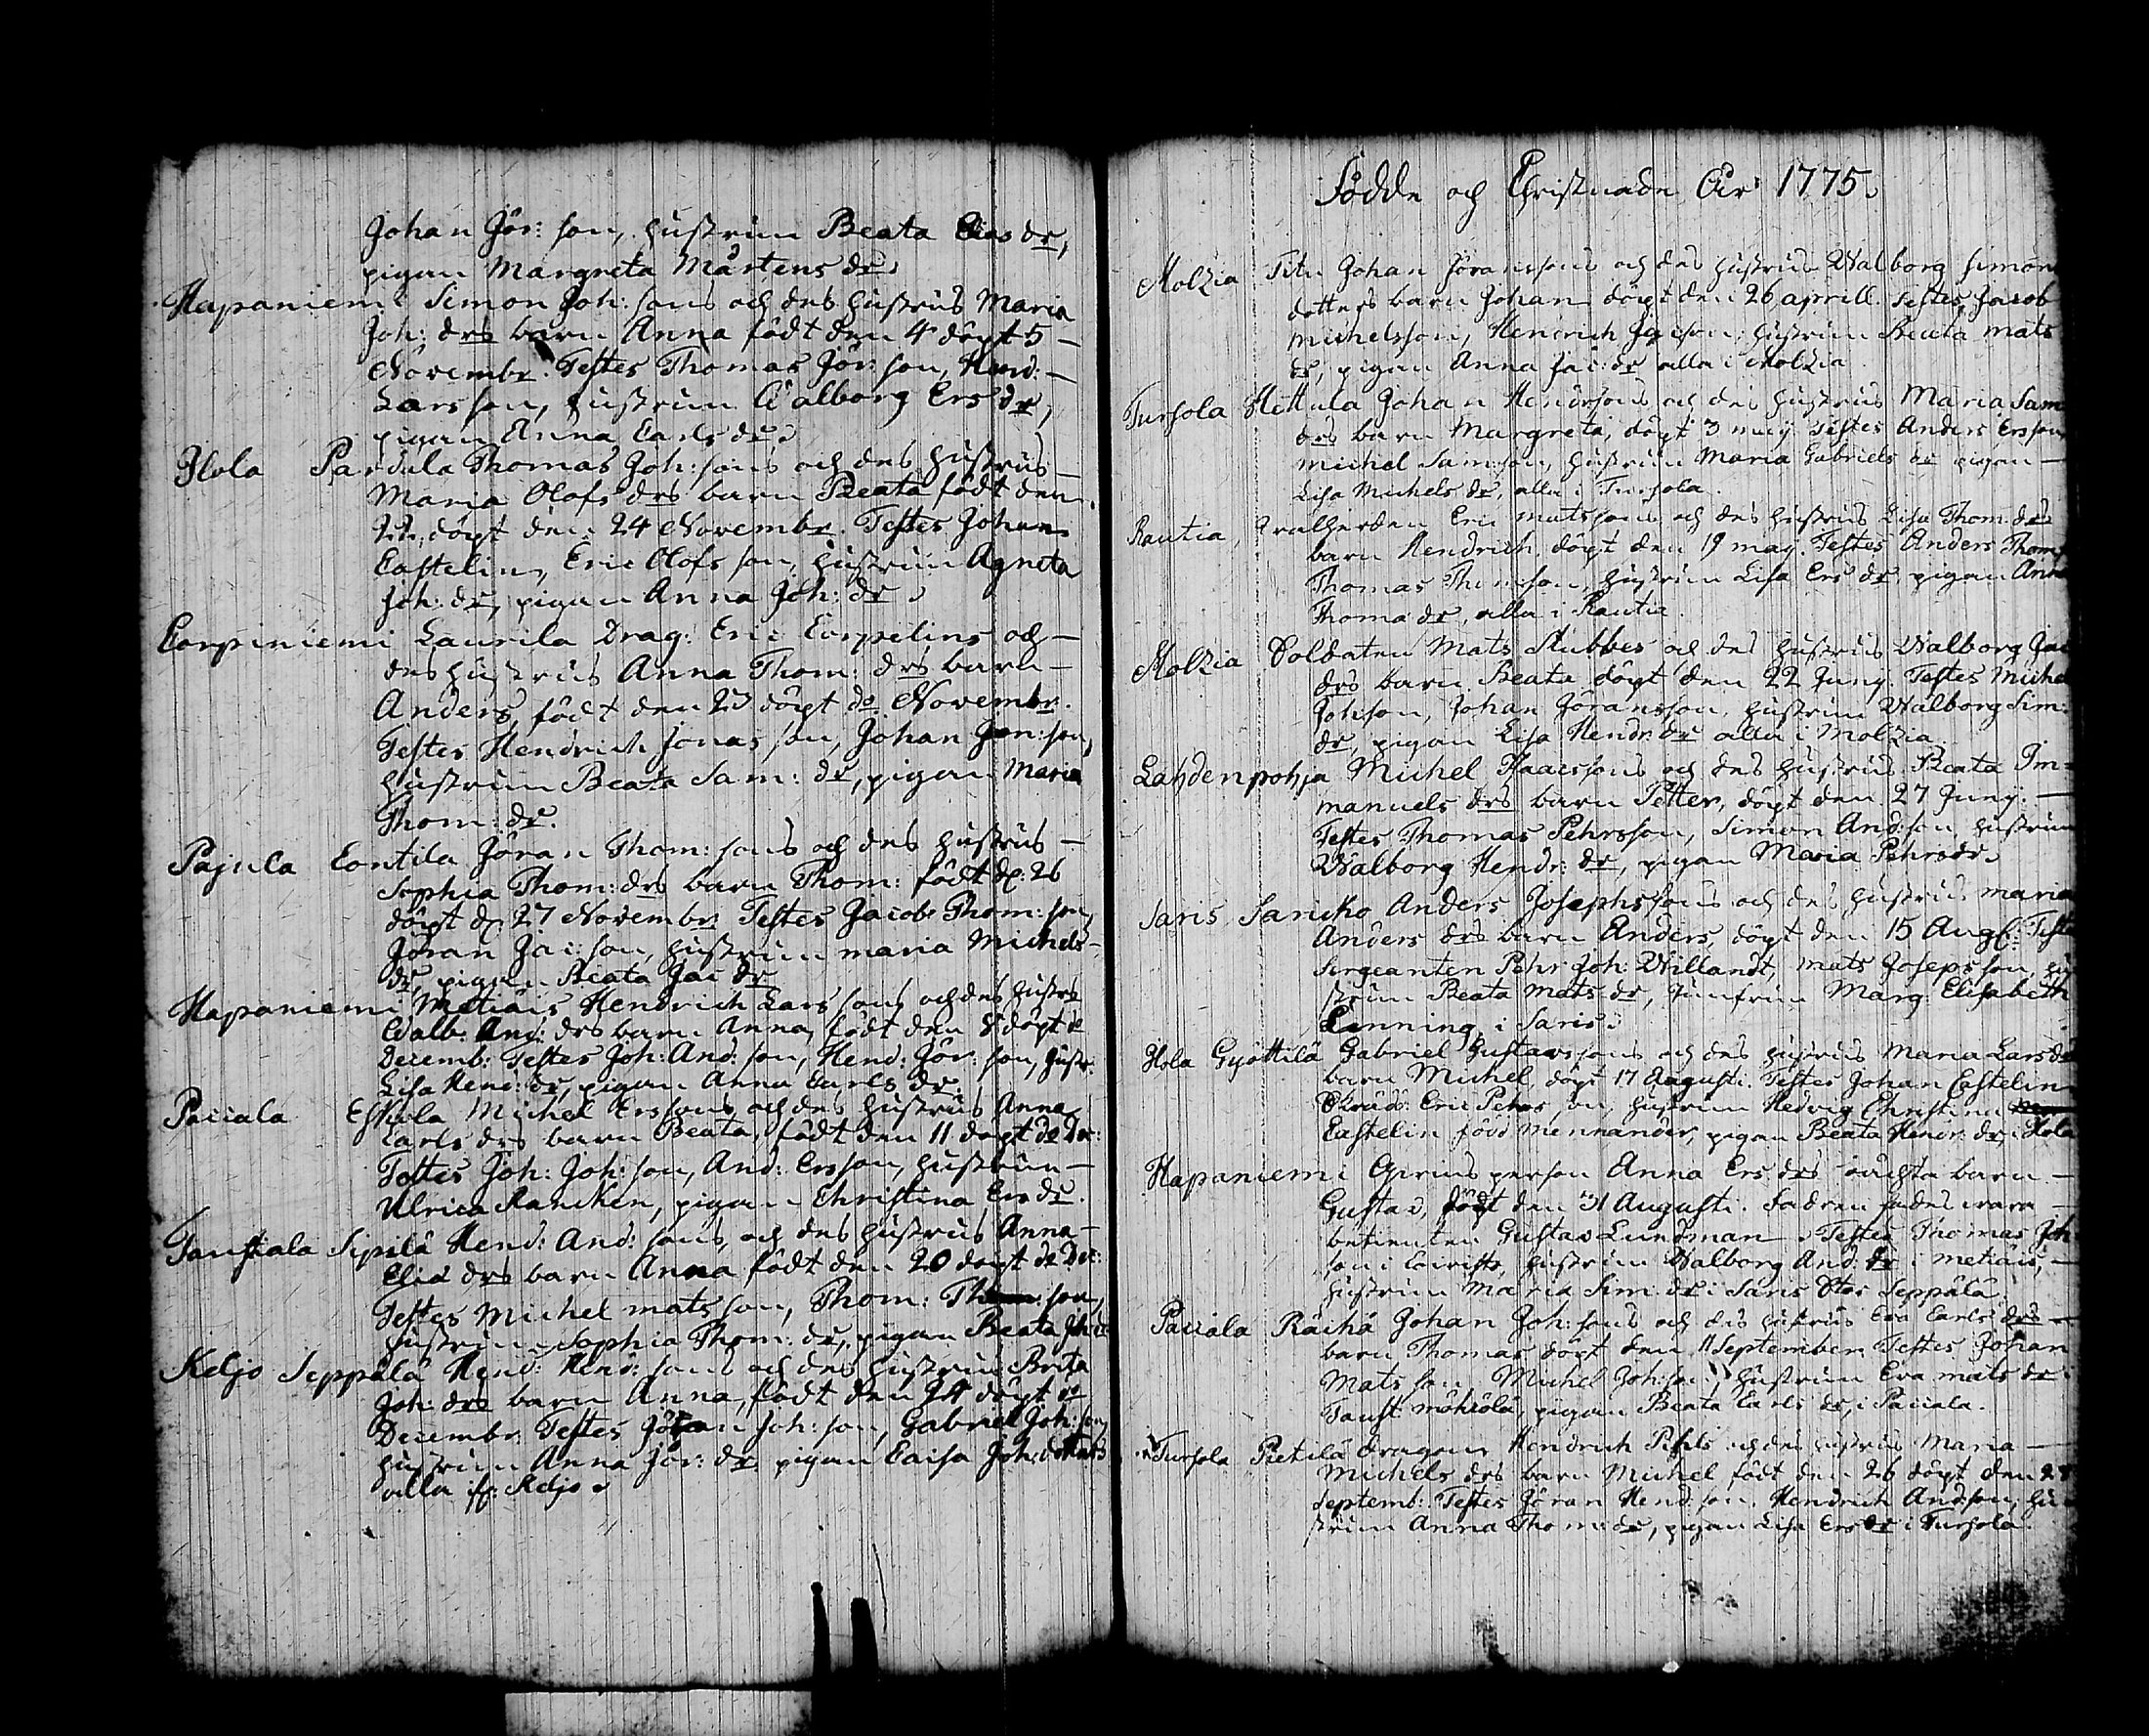 Johan Jör: son, hustrun Beata Elias dr,
pigan Margreta Mårtens dr.
Hapaniemi Simon Joh: sons och des hustrus Maria
Joh: drs barn Anna födt den 4 döpt 5 –
Novembr. Testes Thomas Jör: son, Hend: –
Lars son, hustrun Walborg Ers dr,
pigan Anna Carls dr.
Ilola Pardala Thomas Joh: sons och des hustrus –
Maria Olofs drs barn Beata födt den
22 döpt den 24 Novembr. Testes Johan
Castelin, Eric Olofs son, hustrun Agneta
Joh: dr, pigan Anna Joh: dr.
Corpiniemi Laurila Drag: Eric Corpelins och –
des hustrus Anna Thom: drs barn –
Anders, födt den 23 döpt do Novembr.
Testes Hendrich Jonas son, Johan Jon: son,
hustrun Beata Sam: dr, pigan Maria
Thom: dr.
Pajula Contila Jöran Thom: sons och des hustrus –
Sophia Thom: drs barn Thom: födt d. 26
döpt d. 27 Novembr Testes Jacob Thom: son,
Jöran Jac: son, hustrun Maria Michels
dr, pigan Beata Jac dr
Hapaniemi Metiäis Hendrich Lars sons och des hustrs
Walb: And: drs barn Anna, födt den 8 döpt do
Decemb: Testes Joh: And: son, Hend: Jör: son, hustr.
Lisa Hend: dr, pigan Anna Carls dr
Paciala Eskola Michel Ers sons och des hustrus Anna
Carls drs barn Beata, födt den 11 döpt do Dec:
Testes Joh: Joh: son, And: Ersson, hustrun –
Ulrica Rancken, pigan Christina Ers dr.
Tanskala Sipilä Hend: And: sons, och des hustrus Anna –
Elia drs barn Anna födt den 20 döpt do Dec:
Testes Michel Mats son, Thom: Thom: son,
hustrun Sophia Thom: dr, pigan Beata Joh dr
Keljo Seppälä Hend: Hend: sons och des hustrus Brita
Joh: drs barn Anna, födt den 24 döpt do
Decembr. Testes Johan Joh: son, Gabriel Joh: son,
hustrun Anna Jör: dr, pigan Caisa Joh: dotter
alla if: Keljo.
Födde och Christnade År 1775.
Molzia Johan Jöranssons och des hustrus Walborg Simons
dotters barn Johan döpt den 26 aprill. Testes Jacob
Michelsson, Hendrich Jacson, hustrun Beata Mats
dr, pigan Anna Jac: dr alla i Molzia
Tursola Hettula Johan Hendrsons och des hustrus Maria Sam
drs barn Margreta, döpt 3 maij Testes Anders Ersson
Michel Sam: son, hustrun Maria Gabriels dr pigan –
Lisa Michels dr, alla i Tursola.
Rautia, Eric Matssons och des hustrus Lisa Thom: drs
barn Hendrich döpt den 19 may. Testes Anders Thom
Thomas Thomson, hustrun Lisa Ers dr, pigan Anna
Thoma dr, alla i Rautia.
Molzia Soldaten Mats Stubbes och des hustrus Walborg Jac
drs barn Beata döpt den 22 Juny. Testes Michel
Johson, Johan Jöransson, hustrun Walborg Sim:
dr, pigan Lisa Hendr: dr alla i Molzia.
Lahdenpohja Michel Isaacssons och des hustrus Beata Im=
manuels drs barn Petter, döpt den 27 Juny. –
Testes Thomas Pehrsson, Simon And: son, hustrun
Walborg Hendr: dr, pigan Maria Pehrs dr.
Saris Saricko Anders Josephssons och des hustrus Maria
Anders drs barn Anders, döpt den 15 Aug: Testes
Sergeanten Pehr Joh: Willandt, Mats Josepsson, hu
strun Beata Mats dr, Jumfrun Marg: Elisabeth
Lenning, i Saris.
Ilola Gyöttilä Gabriel Gustavssons och des hustrus Maria Lars drs
barn Michel, döpt 17 Augusti. Testes Johan Castelin
Eric Pehrs son, hustrun Hedvig Christina
Castelin född Mennander, pigan Beata Hendr: dr, Ilola
Hapaniemi person Anna Ers drs oächta barn –
Gustav, födt den 31 Augusti. Fadren sades wara –
betienten Gustav Lundman. Testes Thomas Joh
son i, hustrun Walborg And: dr i Metiäis, –
hustrun Maria Sim: dr i Saris Seppälä.
Paciala Räihä Johan Joh: sons och des hustrus Eva Carls drs –
barn Thomas döpt den 11 September Testes Johan
Mats son Michel Joh: son, hustrun Eva Mats dr i
Taust mökiölä, pigan Beata Carls dr, i Paciala.
Tursola Pietilä dragon Hendrich och des hustrus Maria –
Michels drs barn Michel födt den 26 döpt den 28
Septemb: Testes Jöran Hend: son, Hendrich Andson, hu
strun Anna Thom: dr, pigan Lisa Ers dr i Tursola.